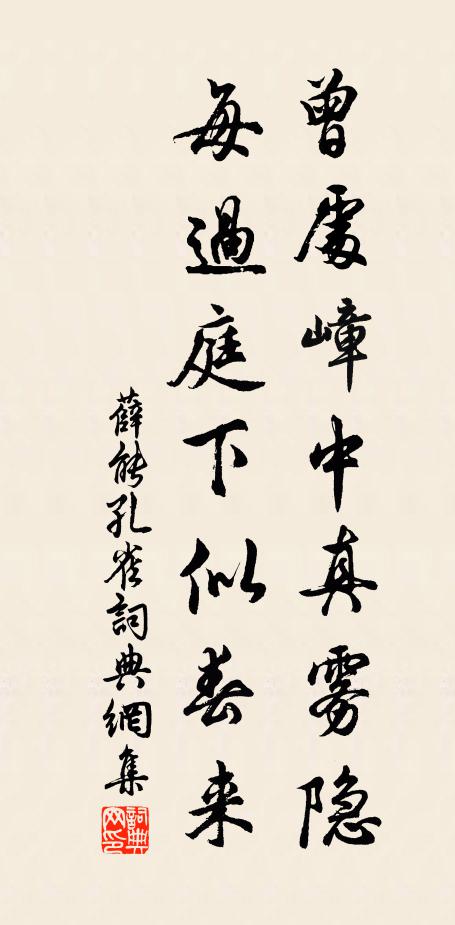 曾處嶂中真雾隐
每過庭下似春来
薛能孔雀詞典網集
詞典网印